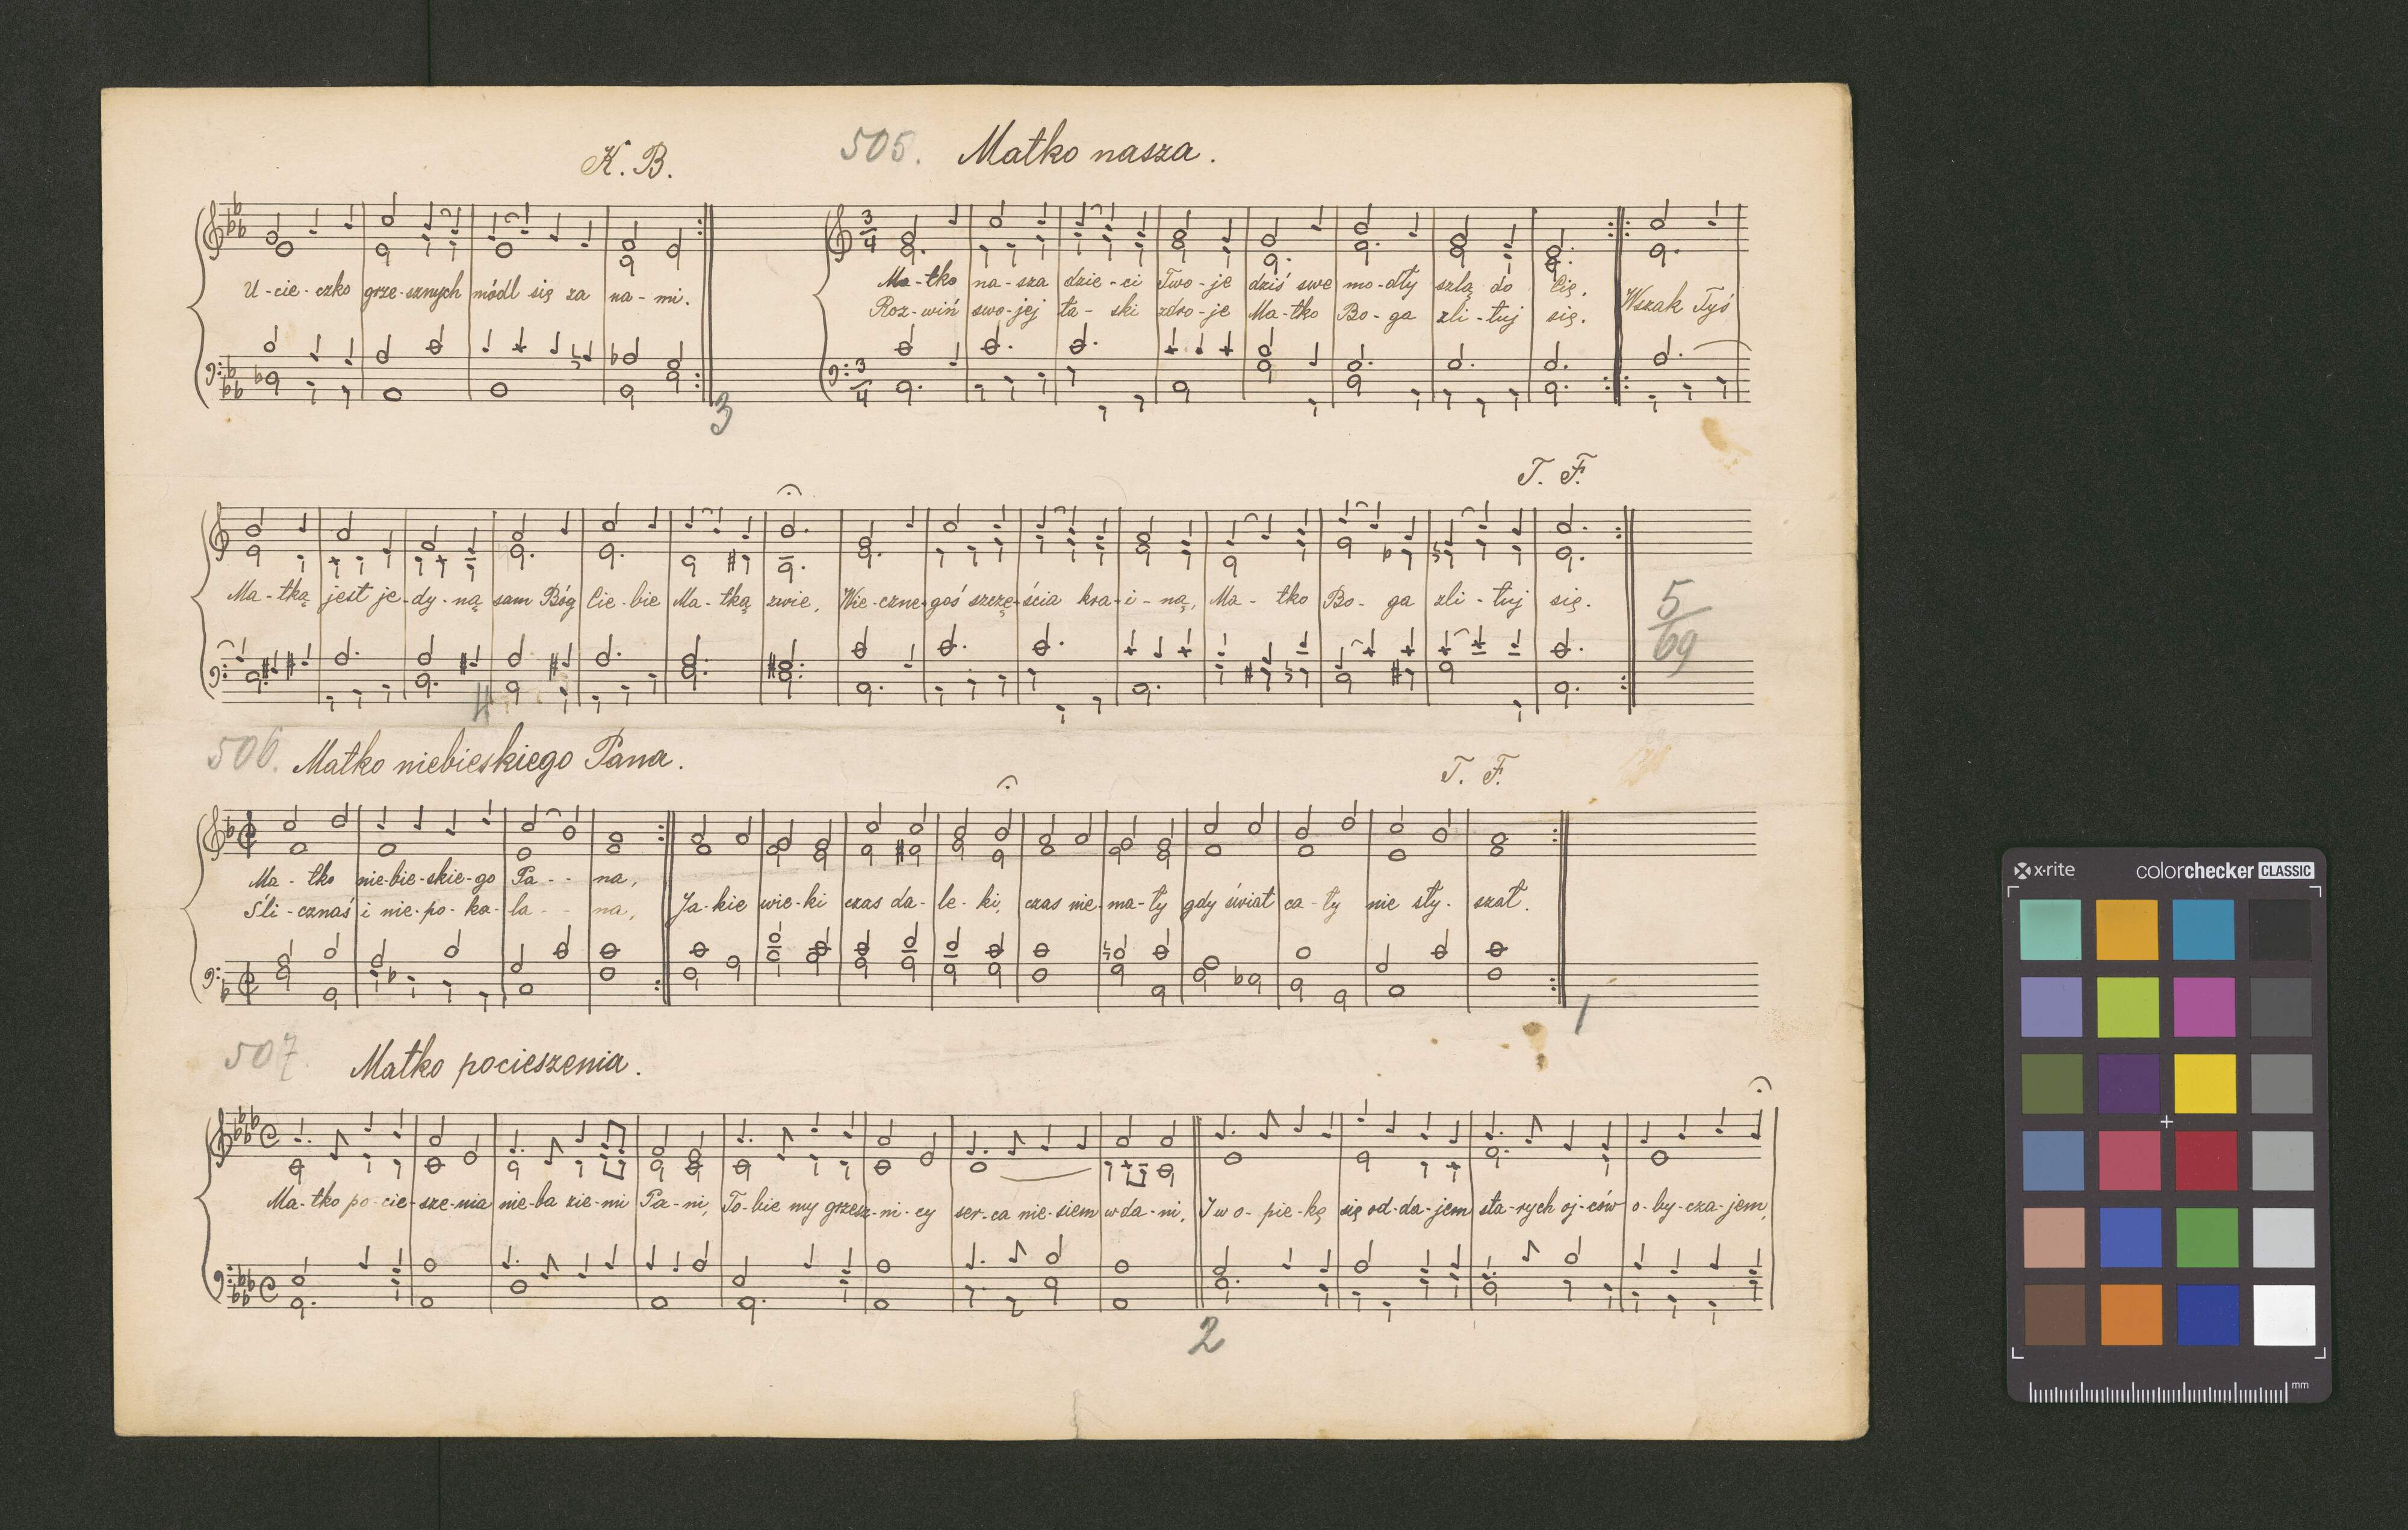 K. B.
505. Matko nasza.
U-cie-czko grze-sznych módl się za na-mi.
Ma-tko na-sza dzie-ci Two-je dziś swe mo-dły szlą do Cię. Wszak Tyś
Roz-wiń swo-jej ła-ski zdro-je Ma-tko Bo-ga zli-tuj się.
3
T. F.
Ma-tką jest je-dy-ną sam Bóg Cie-bie Ma-tką zwie, Wie-czne-goś szczę-ścia kra-i-ną, Ma-tko Bo-ga zli-tuj się.
5/69
4
506. Matko niebieskiego Pana.
T. F.
Ma-tko nie-bie-skie-go Pa-- na,
Śli-cznaś i nie-po-ka-la-- na, Ja-kie wie-ki czas da-le-ki, czas nie-ma-ły gdy świat ca-ły nie sły-szał.
1
507. Matko pocieszenia.
Ma-tko po-cie-sze-nia nie-ba zie-mi Pa-ni, To-bie my grzesz-ni-cy ser-ca nie-siem w da-ni, I w o-pie-kę się od-da-jem sta-rych oj-ców o-by-cza-jem,
2
x-rite colorchecker CLASSIC
mm